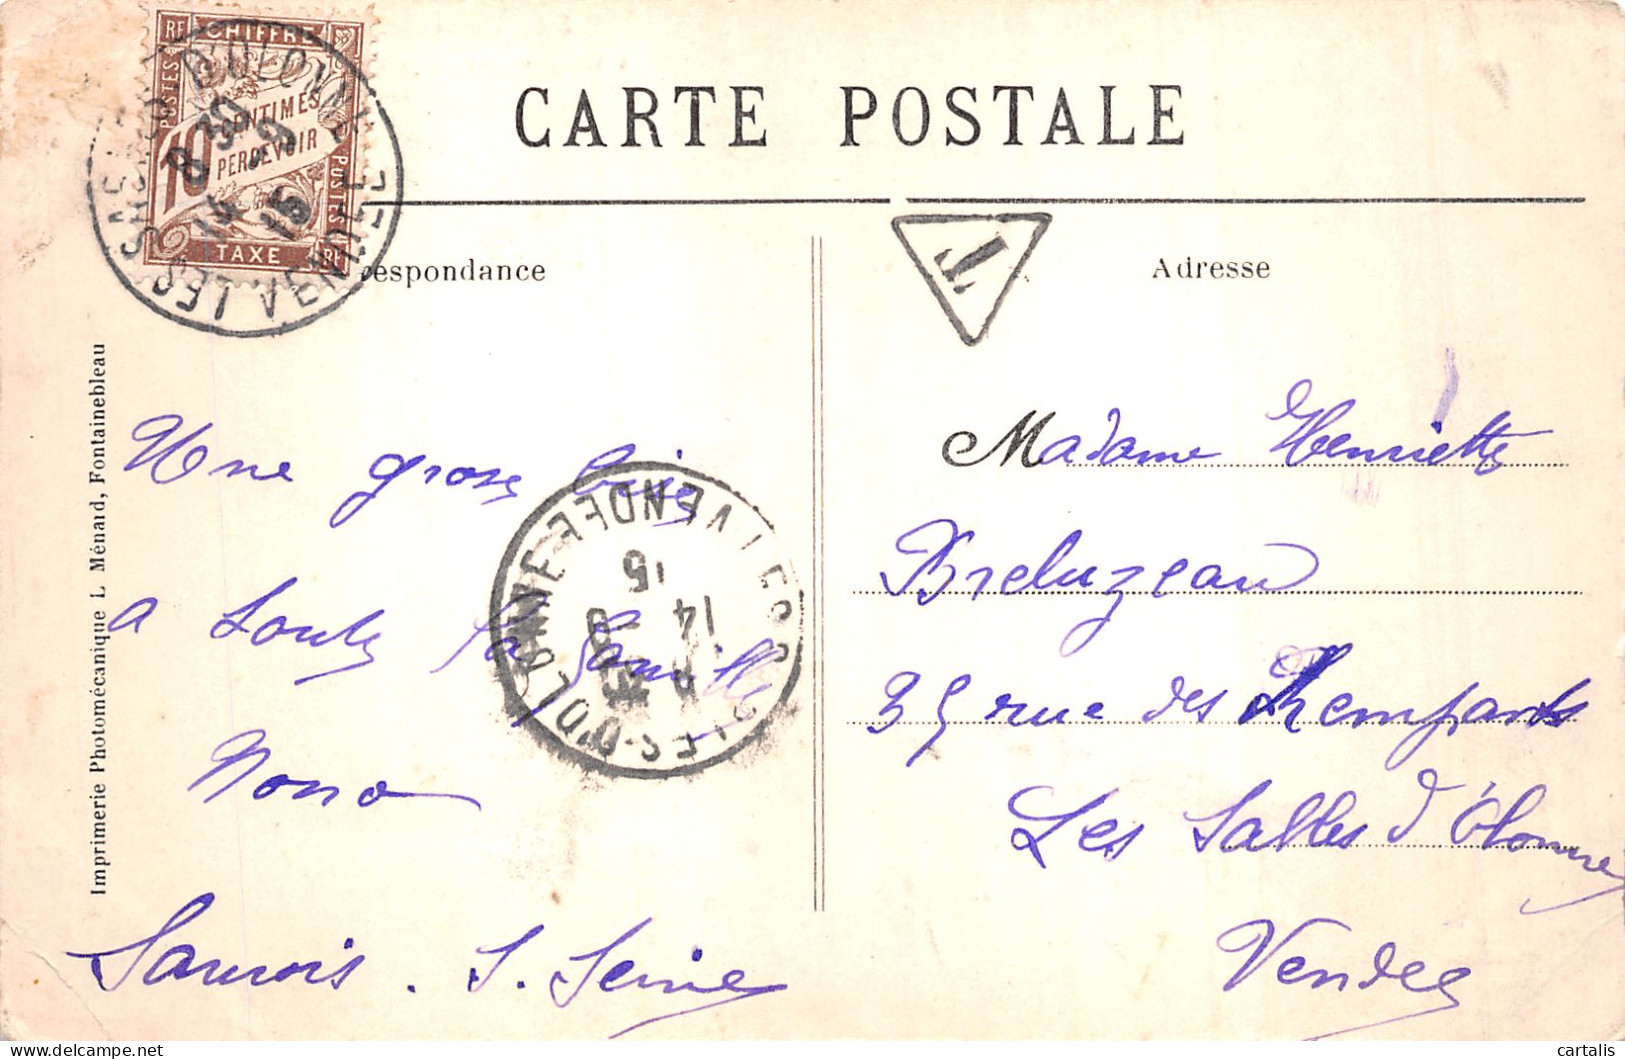 RF CHIFFRE
POSTES
10 CENTIMES
PERCEVOIR
POSTES
TAXE RF
LES SABLES D'OLONNE VENDÉE
8 30
14 -9
15
CARTE POSTALE
T
respondance
Adresse
Imprimerie Photomécanique L. Ménard, Fontainebleau
Une grosse bise
a toute la famille
Nono
Samois . S. Seine
LES SABLES-D'OLONNE VENDÉE
14 -9
15
Madame Henriette
Breluzeau
35 rue des Remparts
Les Salles d'Olonne
Vendee
cartalis